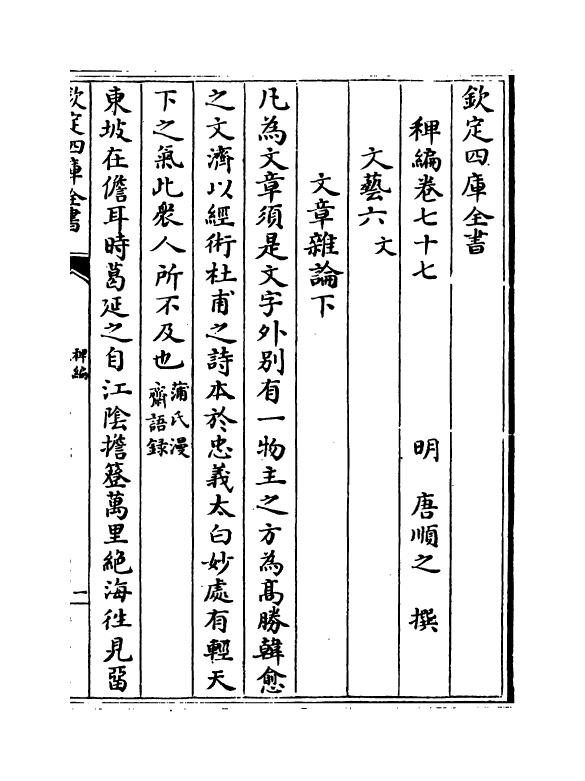 欽定四庫全書
稗編卷七十七　明　唐順之　撰
文藝六文
文章雜論下
凡為文章須是文字外别有一物主之方為髙勝韓愈
之文濟以經術杜甫之詩本於忠義太白妙處有輕天
下之氣此衆人所不及也蒲氏漫齋語録
東坡在儋耳時葛延之自江陰擔簦萬里絶海徃見留
欽定四庫全書
稗編